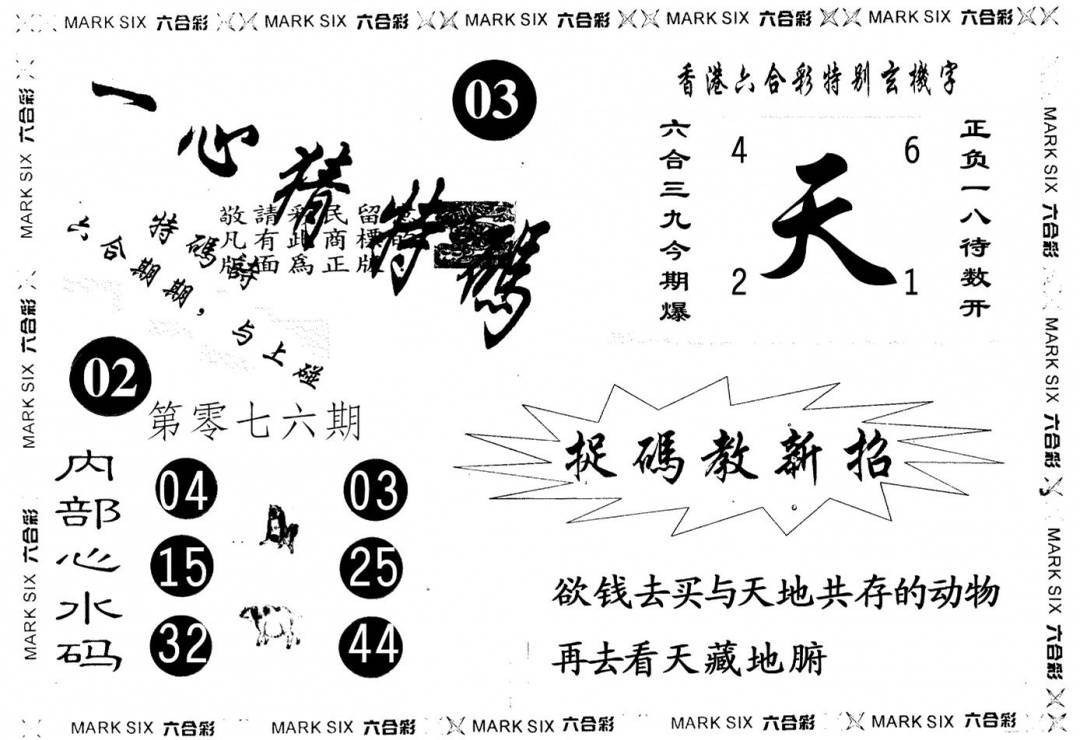 MARK SIX 六合彩 MARK SIX 六合彩 MARK SIX 六合彩 MARK SIX 六合彩 MARK SIX 六合彩
MARK SIX 六合彩
MARK SIX 六合彩
MARK SIX 六合彩
一心猜特碼
03
敬請彩民留意
凡有此商標的
版面為正版
特碼詩
六合期期，与上碰
02
第零七六期
内部心水码
04 03
15 25
32 44
香港六合彩特别玄機字
六合三九今期爆
4 6
天
2 1
正负一八待数开
捉碼教新招
欲钱去买与天地共存的动物
再去看天藏地腑
MARK SIX 六合彩
MARK SIX 六合彩
MARK SIX 六合彩
MARK SIX 六合彩 MARK SIX 六合彩 MARK SIX 六合彩 MARK SIX 六合彩 MARK SIX 六合彩